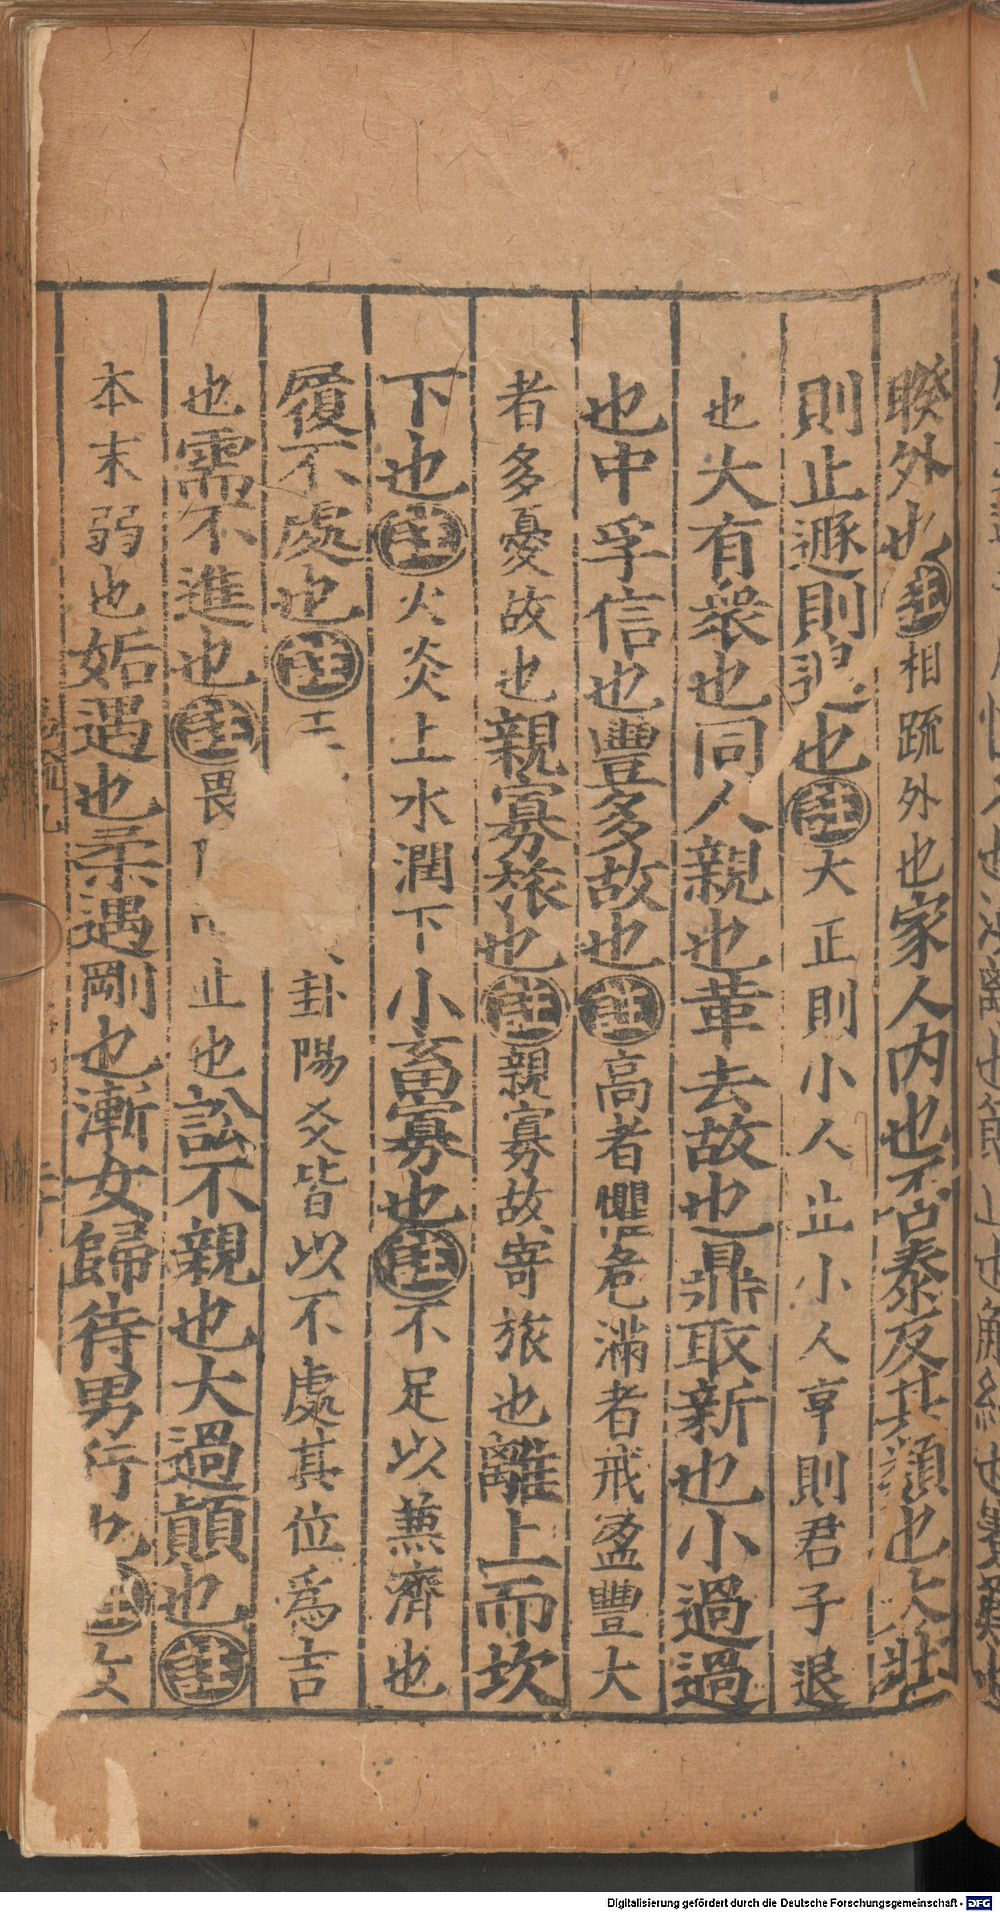 睽外也註相疏外也家人内也否泰反其類也大壯
則止遯則退也註大正則小人止小人亨則君子退
也大有衆也同人親也革去故也鼎取新也小過過
也中孚信也豐多故也註高者懼危滿者戒盈豐大
者多憂故也親寡旅也註親寡故寄旅也離上而坎
下也註火炎上水潤下小畜寡也註不足以兼濟也
履不處也註王 卦陽爻皆以不處其位爲吉
也需不進也註畏 止也訟不親也大過顚也註
本末弱也姤遇也柔遇剛也漸女歸待男行也註女
Digitalisierung gefördert durch die Deutsche Forschungsgemeinschaft - DFG